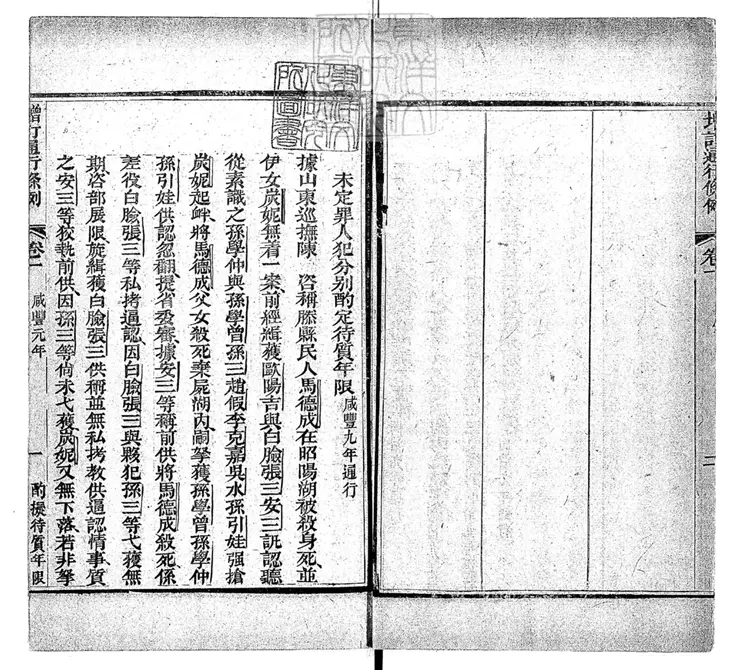 增訂通行條例
卷一
二
未定罪人犯分别酌定待質年限 咸豐九年通行
據山東巡撫陳 咨稱滕縣民人馬德成在昭陽湖被殺身死並
伊女炭妮無着一案前經緝獲歐陽吉與白臉張三安三訊認聽
從素識之孫學仲與孫學曾孫三趙假李克嘉吳水孫引娃强搶
炭妮起衅將馬德成父女殺死棄屍湖内嗣拏獲孫學曾孫學仲
孫引娃供認忽翻提省委審據安三等稱前供將馬德成殺死係
差役白臉張三等私拷逼認因白臉張三與夥犯孫三等弋獲無
期咨部展限旋緝獲白臉張三供稱並無私拷教供逼認情事質
之安三等狡執前供因孫三等尚未弋獲炭妮又無下落若非拏
增訂通行條例
卷二
咸豐元年
一
酌擬待質年限